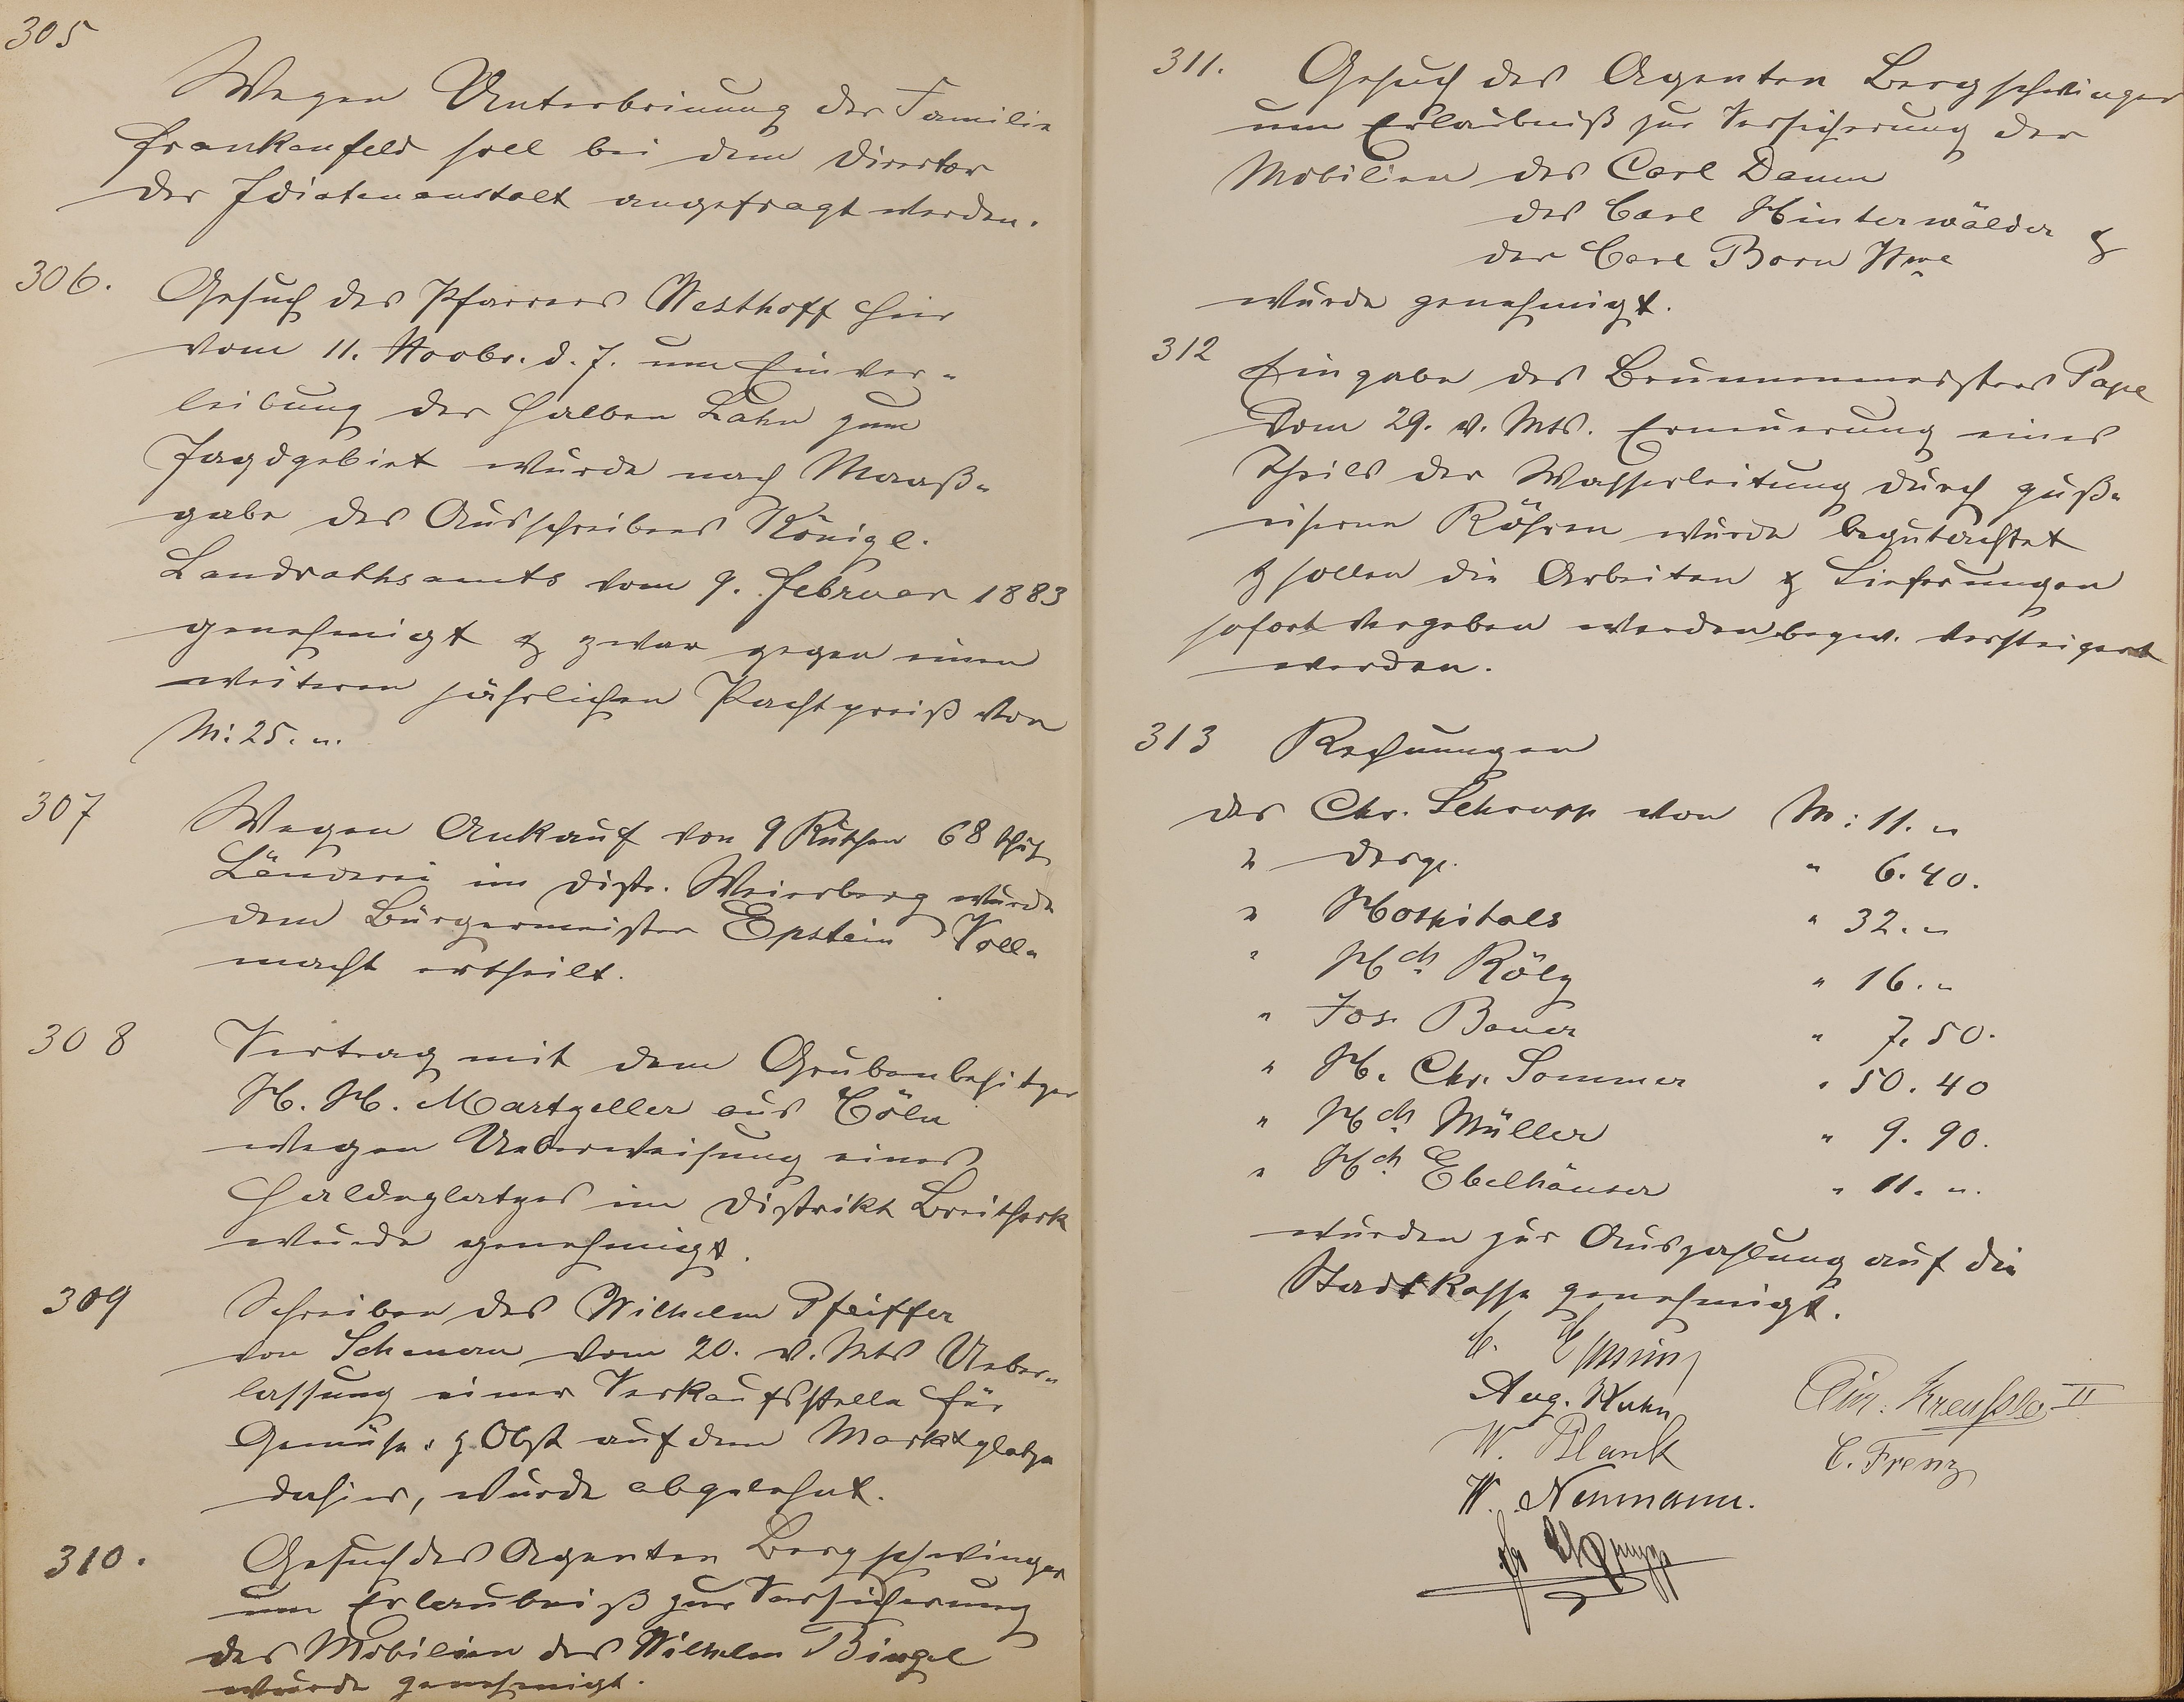 305
Wegen Unterbringung der Familie
Frankenfeld soll bei dem Director
der Idiotenanstalt angefragt werden.
306.
Gesuch des Pfarrers Westhoff hier
vom 11. Novbr. d. J. um Einver-
leibung der halben Lahn zum
Jagdgebiet wurde nach Maaß-
gabe des Ausschreibens Königl.
Landrathsamts vom 9. Februar 1883
genehmigt & zwar gegen einen
weiteren jährlichen Pachtpreiß von
M: 25. „.
307
Wegen Ankauf von 9 Ruthen 68 Schuh
Länderei im Distr. Weierberg wurde
dem Bürgermeister Epstein Voll-
macht ertheilt.
308
Vertrag mit dem Grubenbesitzer
H. H. Martzeller aus Cöln
wegen Ueberweisung eines
Haldeplatzes im Distrikt Breitheck
wurde genehmigt.
309
Schreiben des Wilhelm Pfeiffer
von Scheuern vom 20. v. Mts Ueber-
lassung einer Verkaufsstelle für
Gemüse & Obst auf dem Marktplatze
dahier, wurde abgelehnt.
310.
Gesuch des Agenten Bergschwinger
um Erlaubniß zur Versicherung
der Mobilien des Wilhelm Bingel
wurde genehmigt.
311.
Gesuch des Agenten Bergschwinger
um Erlaubniß zur Versicherung der
Mobilien des Carl Damm
des Carl Hinterwälder &
der Carl Born Wwe
wurde genehmigt.
312
Eingabe des Brunnenmeisters Pape
vom 29. v. Mts. Erneuerung eines
Theils der Wasserleitung durch guß-
eiserne Röhren wurde begutachtet
& sollen die Arbeiten & Lieferungen
sofort vergeben werden bezw. versteigert
werden.
313 Rechnungen
des Chr. Schrupp von M: 11. „
„ desgl. „ 6. 40.
„ Hospitals „ 32. „
„ Hch. Rölz „ 16. „
„ Jos. Bauer „ 7. 50.
„ H. Chr. Sommer „ 50. 40
„ Hch. Müller „ 9. 90.
„ Hch. Ebelhäuser „ 11. „.
wurden zur Auszahlung auf die
Stadtkasse genehmigt.
C. Epstein
Aug. Kuhn
Chr. Kreußler II
W. Plank
C. Frenz
W. Neumann.